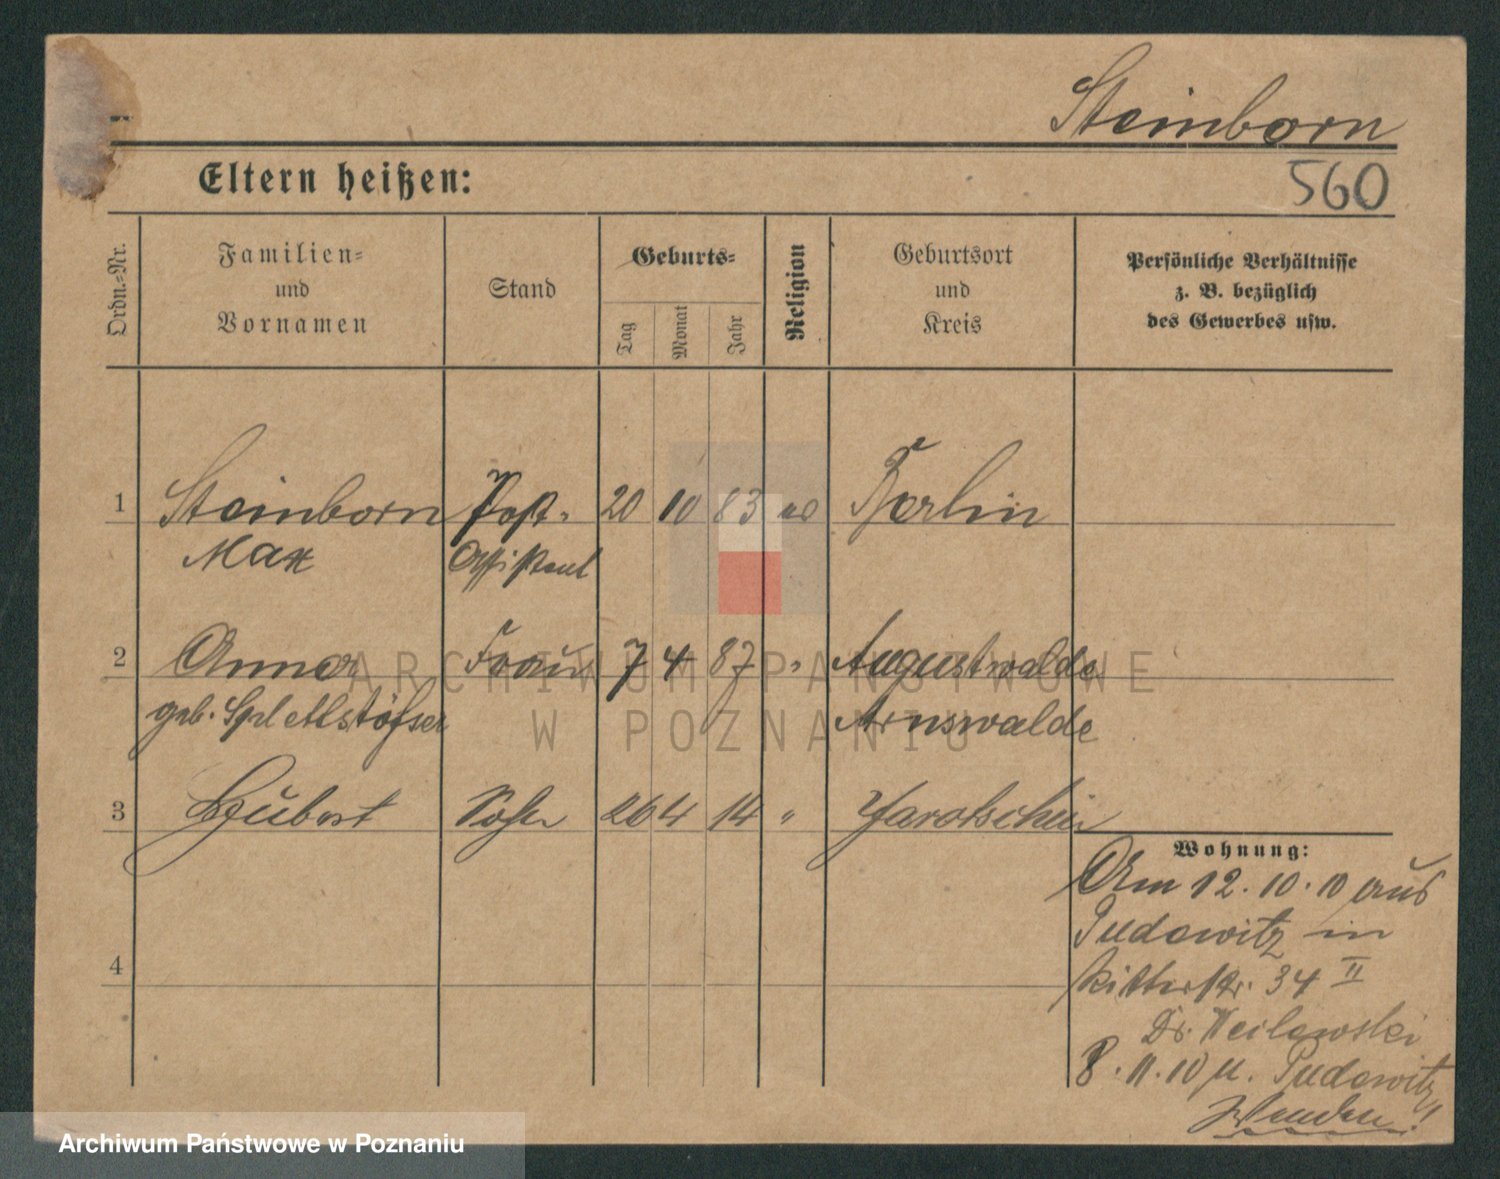 Steinborn
Eltern heißen:
560
Ordn.=Nr.
Familien=
und
Vornamen
Stand
Geburts=
Tag
Monat
Jahr
Religion
Geburtsort
und
Kreis
Persönliche Verhältnisse
z. B. bezüglich
des Gewerbes usw.
1 Steinborn Post= 20 10 83 Berlin
Max Assistent
2 Anna Frau 7 4 87 " Augustwalde
geb. Arnswalde
3 Hubert Sohn 26 4 14 " Jarotschin
Wohnung:
Am 12.10.10 aus
Pudewitz in
4
Ritterstr. 34 II
Dr.
8.11.10 n. Pudewitz
Wenden!
ARCHIWUM PAŃSTWOWE
W POZNANIU
Archiwum Państwowe w Poznaniu